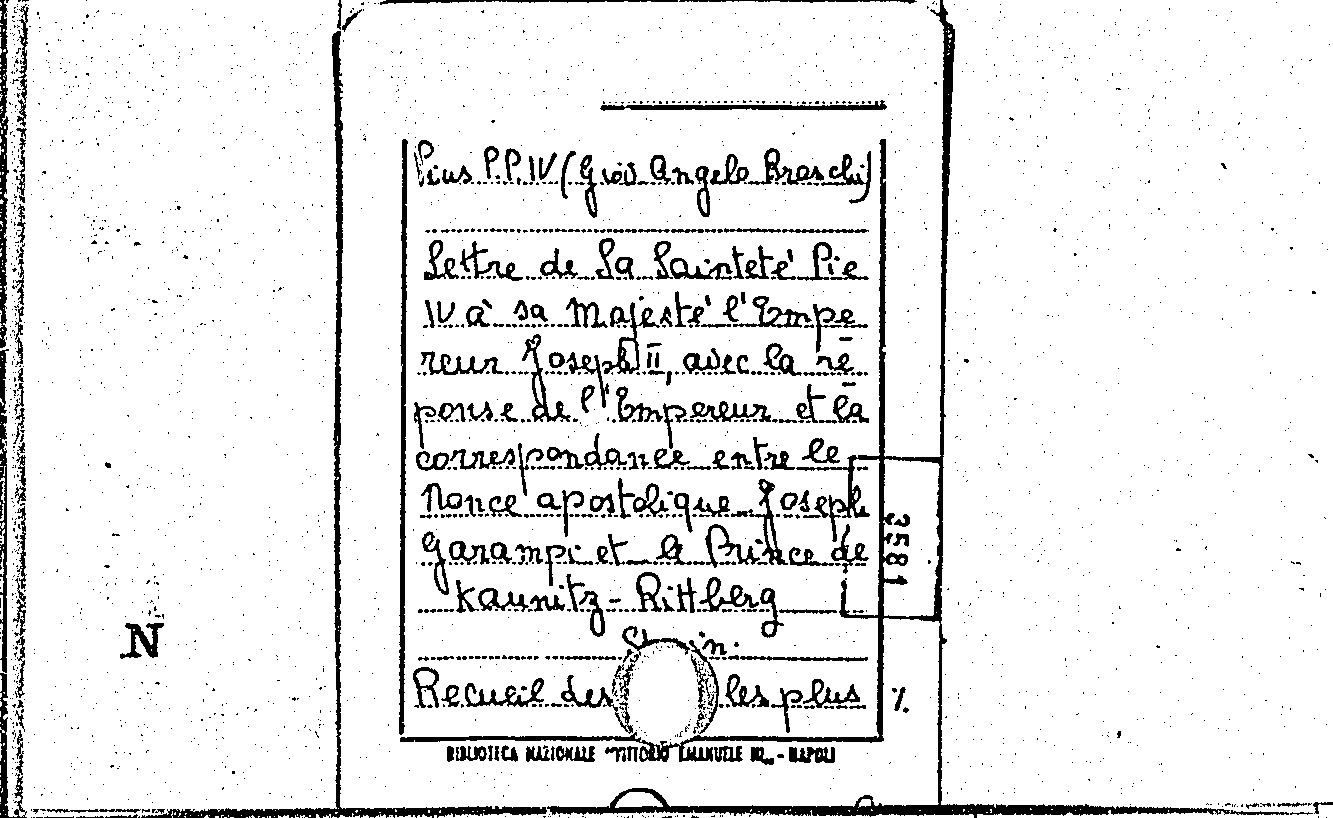 Pius P.P. IV (Giov. Angelo Braschi)
Lettre de Sa Sainteté Pie
IV à sa Majesté l'Empe
reur Joseph II, avec la ré
ponse de l'Empereur et la
correspondance entre le
Nonce apostolique Joseph
Garampi et le Prince de
Kaunitz-Rittberg
Recueil des les plus ./.
3581
N
BIBLIOTECA NAZIONALE "VITTORIO EMANUELE III" - NAPOLI